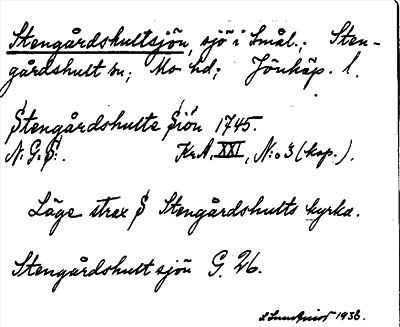 Stengårdshultsjön, sjö i Smål.; Sten-
gårdshult sn; Mo hd; Jönköp. l.
Stengårdhulte Siön 1745.
N: G: S: Kr.A. XXI, N:o 3 (kop.).
Läge strax S Stengårdshults kyrka.
Stengårdshultsjön G. 26.
1936.